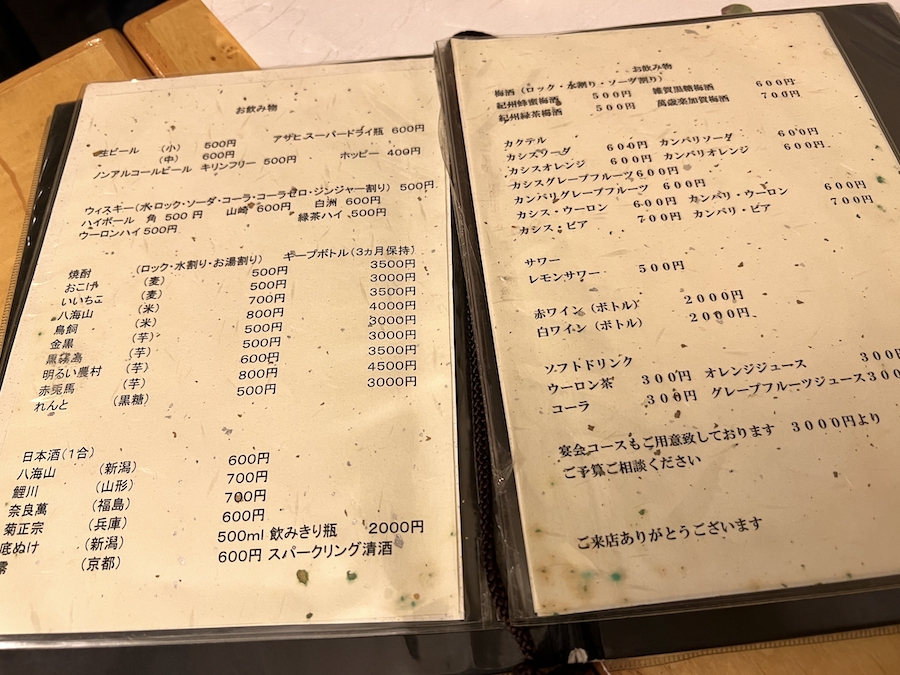 お飲み物
生ビール (小) 500円 アサヒスーパードライ瓶 600円
(中) 600円
ノンアルコールビール キリンフリー 500円 ホッピー 400円
ウィスキー(水・ロック・ソーダ・コーラ・コーラゼロ・ジンジャー割り) 500円
ハイボール 角 500円 山崎 600円 白洲 600円
ウーロンハイ 500円 緑茶ハイ 500円
焼酎 (ロック・水割り・お湯割り) キープボトル(3ヵ月保持)
おこげ (麦) 500円 3500円
いいちこ (麦) 500円 3000円
八海山 (米) 700円 3500円
鳥飼 (米) 800円 4000円
金黒 (芋) 500円 3000円
黒霧島 (芋) 500円 3000円
明るい農村 (芋) 600円 3500円
赤兎馬 (芋) 800円 4500円
れんと (黒糖) 500円 3000円
日本酒(1合)
八海山 (新潟) 600円
鯉川 (山形) 700円
奈良萬 (福島) 700円
菊正宗 (兵庫) 600円
底ぬけ (新潟) 500ml 飲みきり瓶 2000円
澪 (京都) 600円 スパークリング清酒
お飲み物
梅酒(ロック・水割り・ソーダ割り)
紀州蜂蜜梅酒 500円 雑賀黒糖梅酒 600円
紀州緑茶梅酒 500円 萬歳楽加賀梅酒 700円
カクテル
カシスソーダ 600円 カンパリソーダ 600円
カシスオレンジ 600円 カンパリオレンジ 600円
カシスグレープフルーツ 600円
カンパリグレープフルーツ 600円
カシス・ウーロン 600円 カンパリ・ウーロン 600円
カシス・ビア 700円 カンパリ・ビア 700円
サワー
レモンサワー 500円
赤ワイン(ボトル) 2000円
白ワイン(ボトル) 2000円
ソフトドリンク
ウーロン茶 300円 オレンジジュース 300円
コーラ 300円 グレープフルーツジュース 300
宴会コースもご用意致しております 3000円より
ご予算ご相談ください
ご来店ありがとうございます